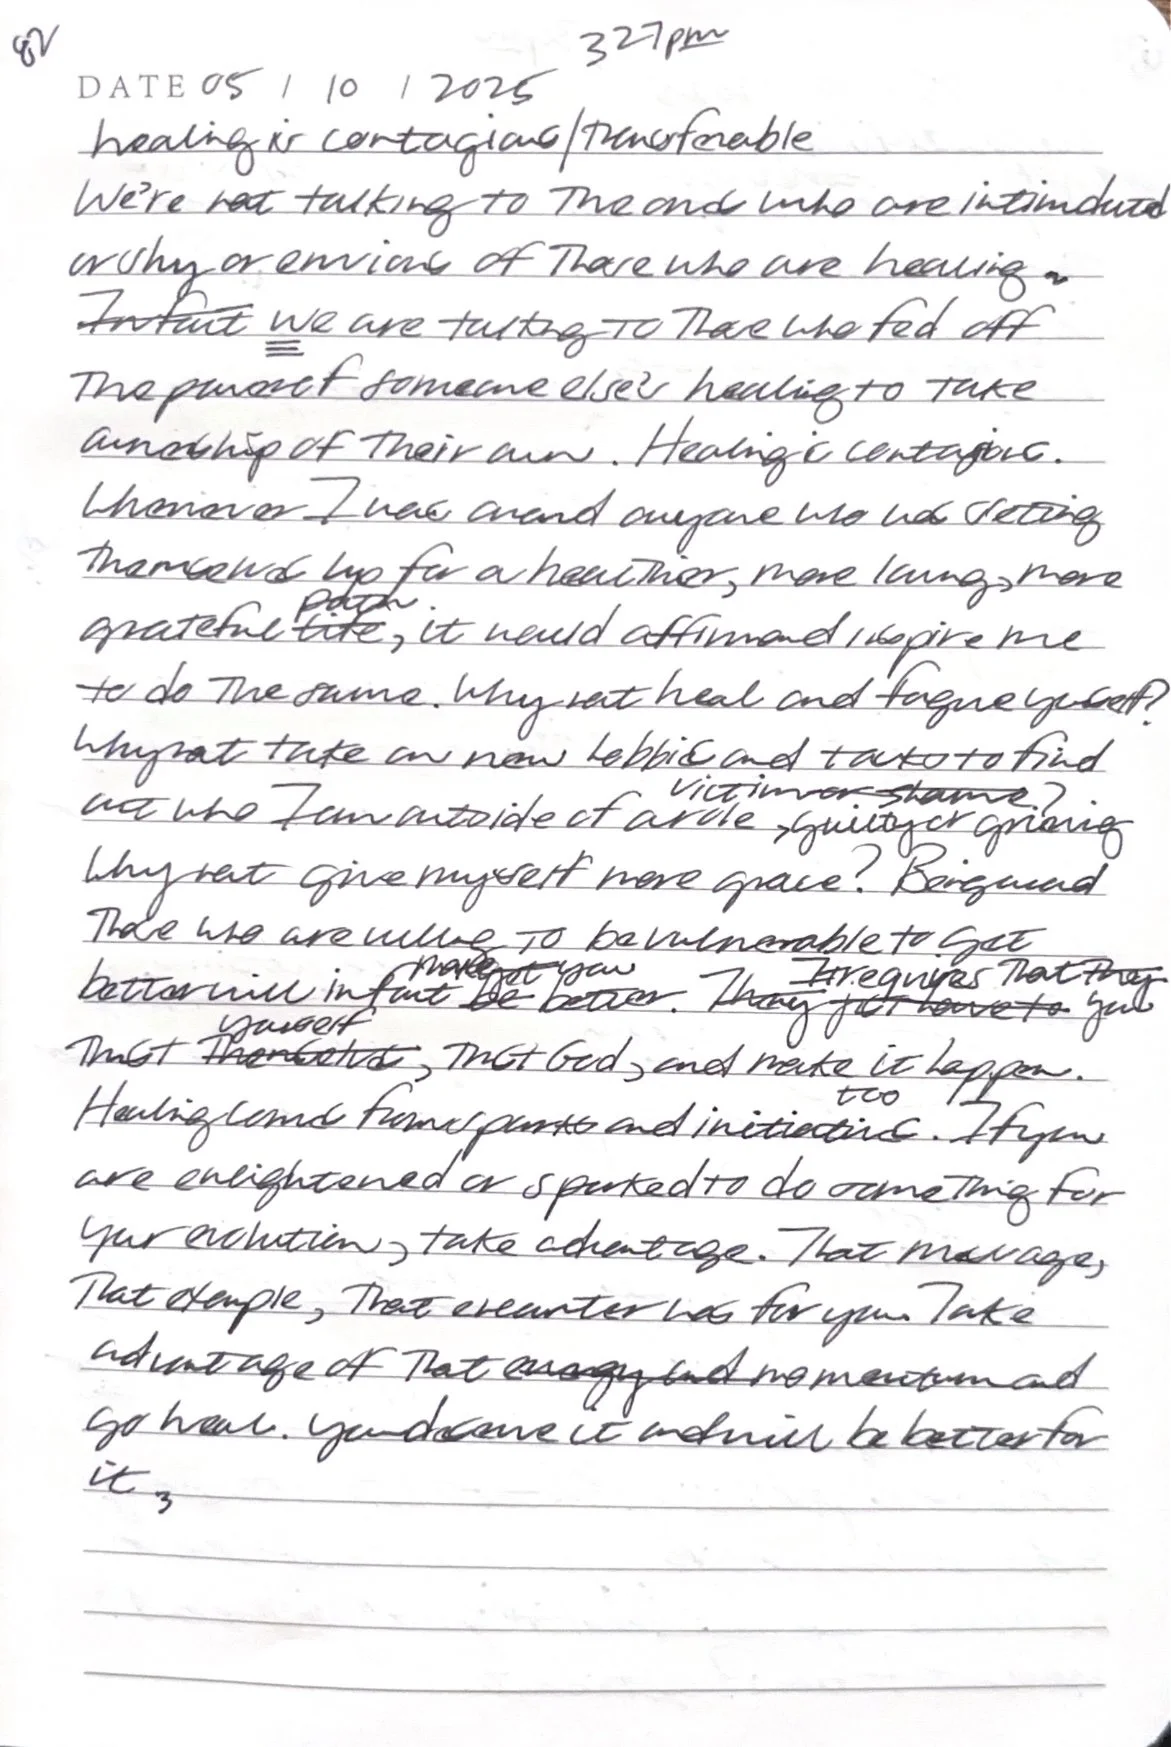 82
327pm
DATE 05 / 10 / 2025
healing is contagious/transferable
We're not talking to the ones who are intimidated
or shy or envious of those who are healing.
In fact We are talking to those who fed off
the power of someone else's healing to take
ownership of their own. Healing is contagious.
Whenever I was around anyone who was setting
themselves up for a healthier, more loving, more
path
grateful life, it would affirm and inspire me
to do the same. Why not heal and forgive yourself?
Why not take on new hobbies and tasks to find
victim or shame?
out who I am outside of a role, guilty or grieving
Why not give myself more grace? Being around
those who are willing to be vulnerable to get
make you It requires that they
better will in fact be better. They just have to you
yourself
trust themselves, trust God, and make it happen.
too
Healing comes from sparks and initiatives. If you
are enlightened or sparked to do something for
your evolution, take advantage. That message,
that example, that encounter was for you. Take
advantage of that energy and momentum and
go heal. You deserve it and will be better for
it.